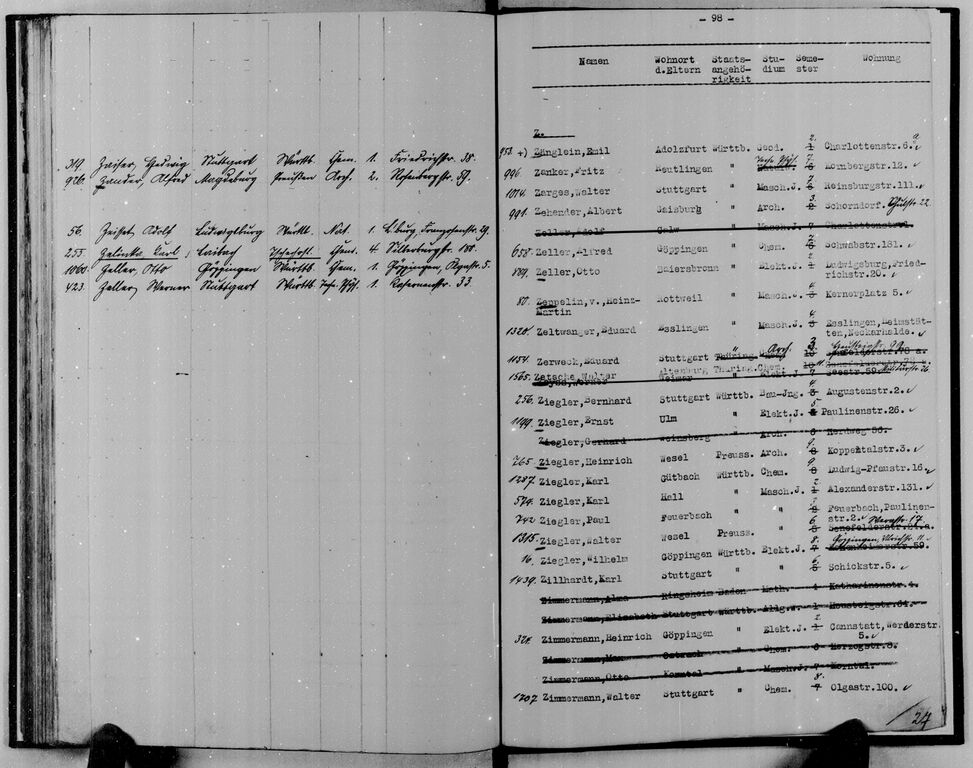 319. Zaiser, Hedwig Stuttgart Württb. Chem. 1. Friedrichstr. 38.
926. Zander, Alfred Magdeburg Preußen Arch. 2. Rosenbergstr. 59.
56. Adolf Ludwigsburg Württb. Nat. 1. L'burg,
255. Karl Laibach Chem. 4. Silberburgstr.
1060. Zeller, Otto Göppingen Württb. Chem. 1. Göppingen, Olgastr. 5.
423. Zeller, Werner Stuttgart Württb. 1. Kasernenstr. 33
- 98 -
Namen Wohnort d.Eltern Staats-angehö-rigkeit Stu-dium Seme-ster Wohnung
Z.
2. a
952 +) Zänglein, Emil Adolzfurt Württb. Geod. 1 Charlottenstr.6.✓
996 Zanker, Fritz Reutlingen " 7 6 Hornbergstr.12. ✓
1074. Zarges, Walter Stuttgart " Masch.J. 7 Reinsburgstr.111.✓
991. Zehender, Albert Gaisburg " Arch. 3. 2 Schorndorf. Schulstr. 22
Zeller, Adolf Calw " Masch.J. 7 Charlottenstr.
658. Zeller, Alfred Göppingen " Chem. 7 Schwabstr.131.✓
809. Zeller, Otto Baiersbronn " Elekt.J. 2. 1 Ludwigsburg,Fried-
richstr.20. ✓
80. Zeppelin,v.,Heinz- Rottweil " Masch.J. 4. 3 Kernerplatz 5.✓
Martin
1320. Zeltwanger, Eduard Esslingen " Masch.J. 4. Esslingen,Heimstät-
ten,Neckarhalde. ✓
1154. Zerweck, Eduard Stuttgart " Arch. 3.
1565. Zetsche, Walter Altenburg Thüring. Chem.
Weimar " Elekt.J. 7 Seestr.59.
256. Ziegler, Bernhard Stuttgart Württb. Bau-Jng. 4 3 Augustenstr.2. ✓
1199. Ziegler, Ernst Ulm " Elekt.J. 5 Paulinenstr.26. ✓
Ziegler, Gerhard Weinsberg " Arch. 8 Herdweg 56.
765. Ziegler, Heinrich Wesel Preuss. Arch. 9. 8 Koppentalstr.3. ✓
1287. Ziegler, Karl Gütbach Württb. Chem. 9 8 Ludwig-Pfaustr.16.✓
579. Ziegler, Karl Hall " Masch.J. 2 1 Alexanderstr.131. ✓
742 Ziegler, Paul Feuerbach " " Feuerbach,Paulinen-
str.2.✓
1315. Ziegler, Walter Wesel Preuss. " 6 Werastr. 17
Senefelderstr.
16. Ziegler, Wilhelm Göppingen Württb. Elekt.J. 8. 7 Göppingen, 11 ✓
1439. Zillhardt, Karl Stuttgart " " 6 Schickstr.5. ✓
Zimmermann, Alma Ringsheim Baden Math. 4 Katharinenstr.4.
Zimmermann, Elisabeth Stuttgart Württb. Allg.W. 1 Neusteigstr.
324. Zimmermann, Heinrich Göppingen " Elekt.J. 2 1 Cannstatt,Werderstr.
5. ✓
Zimmermann, Max " Chem. 8 Herzogstr.8.
Zimmermann, Otto Korntal " Masch.J. 7 Korntal.
1207. Zimmermann, Walter Stuttgart " Chem. 8. 7 Olgastr.100. ✓
24